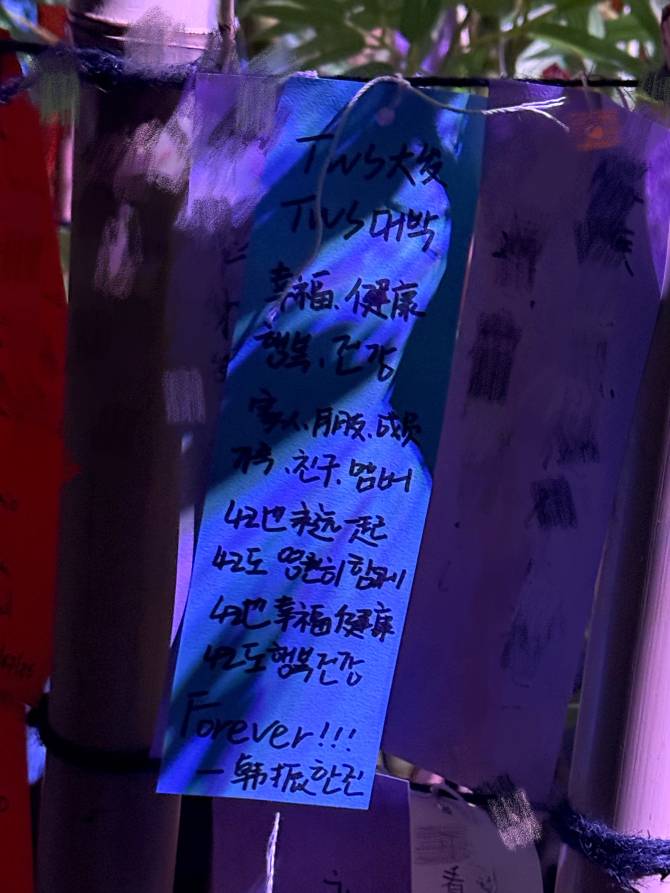 TWS大发
TWS 대박
幸福、健康
행복、건강
家人、朋友、成员
가족、친구、멤버
42也永远一起
42도 영원히 함께
42也幸福健康
42도 행복 건강
Forever!!!
— 韩振 한진
看